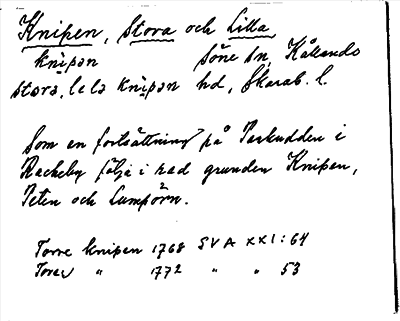 Knipen, Stora och Lilla
knipan Söne sn, Kållands
stora, lela knipan hd, Skarab. l.
Som en fortsättning på Parkudden i
Rackeby följa i rad grunden Knipen,
Peten och Lumpörn.
Torre knipen 1768 SVA XXI: 64
Torev " 1772 " " 53